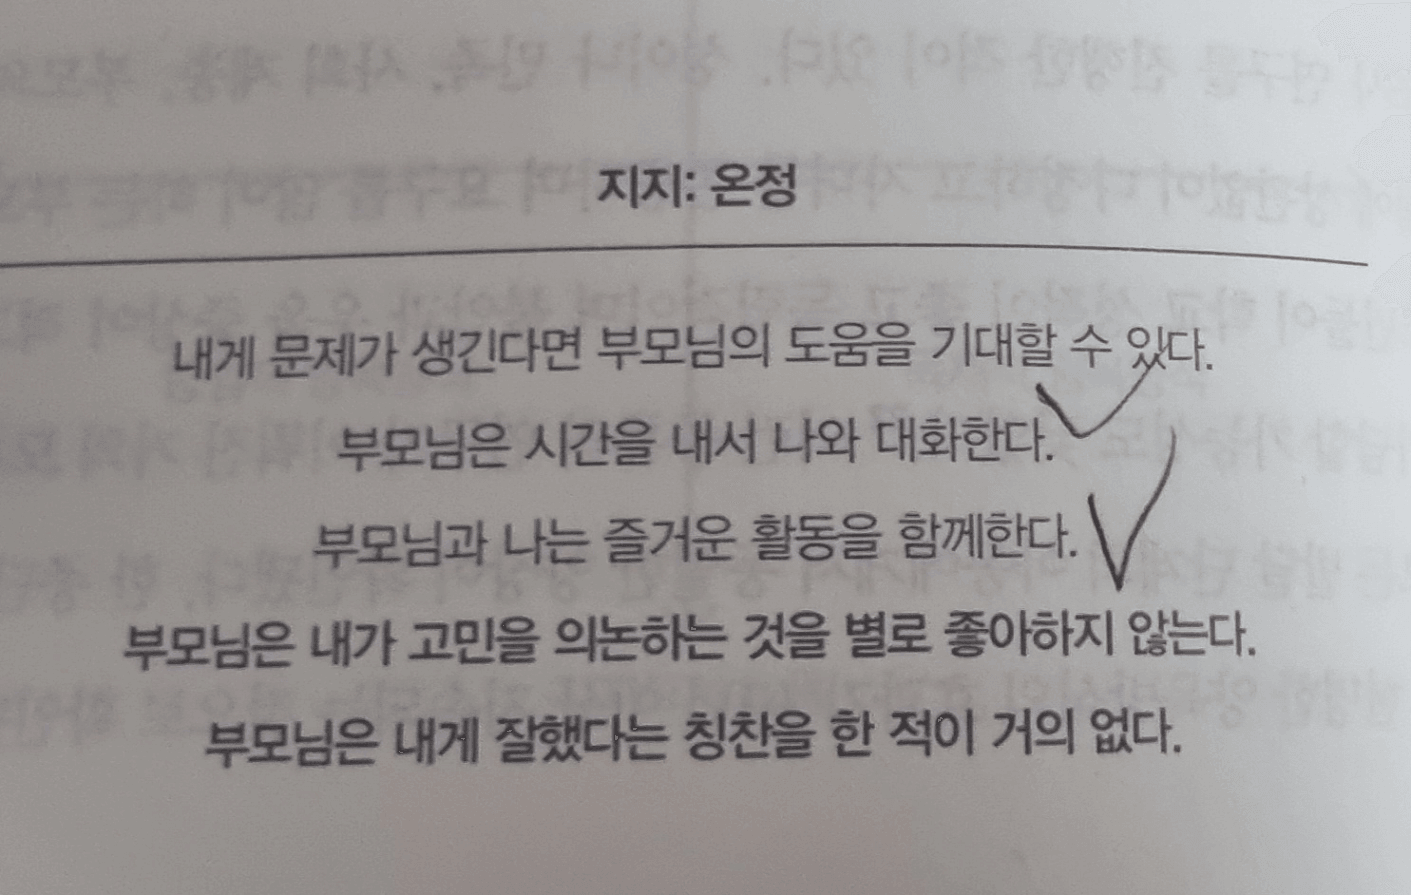 지지: 온정
내게 문제가 생긴다면 부모님의 도움을 기대할 수 있다.
부모님은 시간을 내서 나와 대화한다.
부모님과 나는 즐거운 활동을 함께한다.
부모님은 내가 고민을 의논하는 것을 별로 좋아하지 않는다.
부모님은 내게 잘했다는 칭찬을 한 적이 거의 없다.